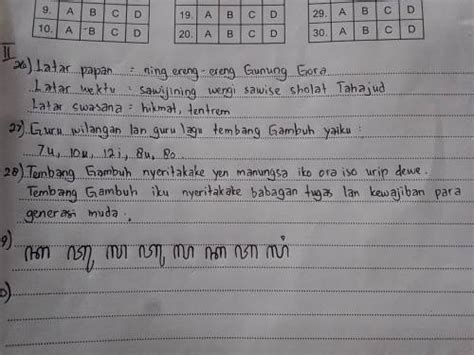 9. A B C D 19. A B C D 29. A B C D
10. A B C D 20. A B C D 30. A B C D
II
26) Latar papan : ning ereng-ereng Gunung Gora
Latar wektu : sawijining wengi sawise sholat Tahajud
Latar swasana : hikmat, tentrem
27) Guru wilangan lan guru lagu tembang Gambuh yaiku :
7u, 10u, 12i, 8u, 8o
28) Tembang Gambuh nyeritakake yen manungsa iko ora iso urip dewe.
Tembang Gambuh iku nyeritakake babagan tugas lan kewajiban para
generasi muda.
9)
0)